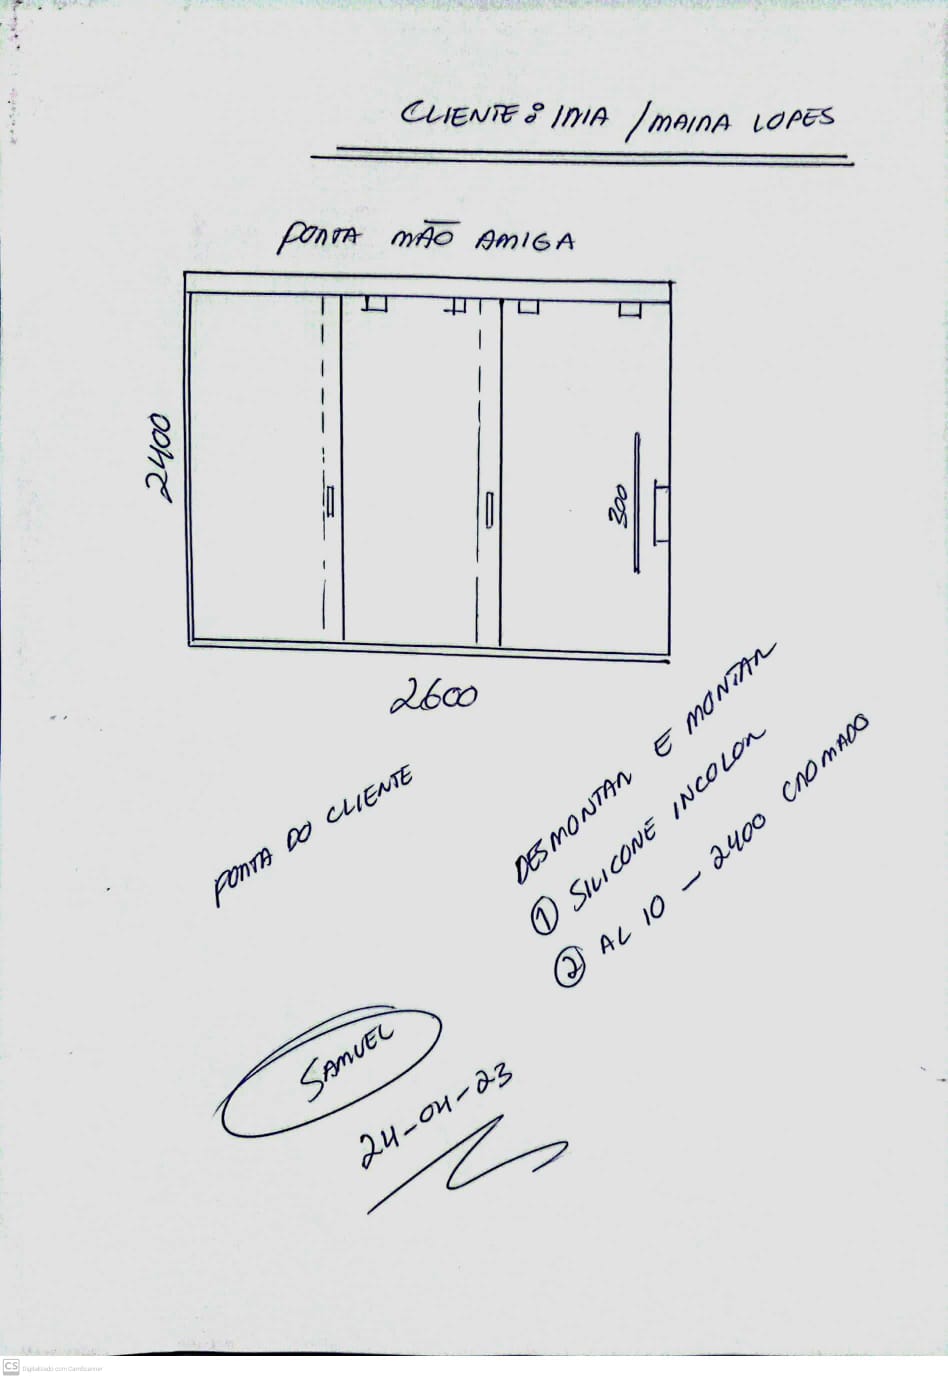 CLIENTE: IRIA / MAIRA LOPES
PORTA MÃO AMIGA
2400
300
2600
PORTA DO CLIENTE
DESMONTAR E MONTAR
1 SILICONE INCOLOR
2 AL 10 - 2400 CROMADO
SAMUEL
24-04-23
CS Digitalizado com CamScanner